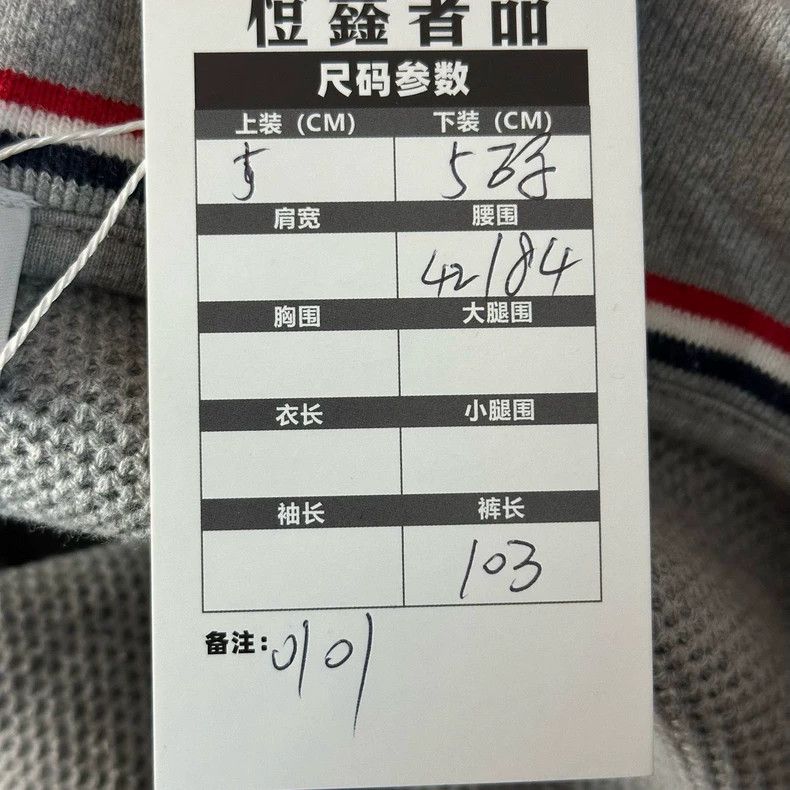 鑫奢品
尺码参数
上装（CM） 下装（CM）
5码
肩宽 腰围
42/84
胸围 大腿围
衣长 小腿围
袖长 裤长
103
备注: 0101